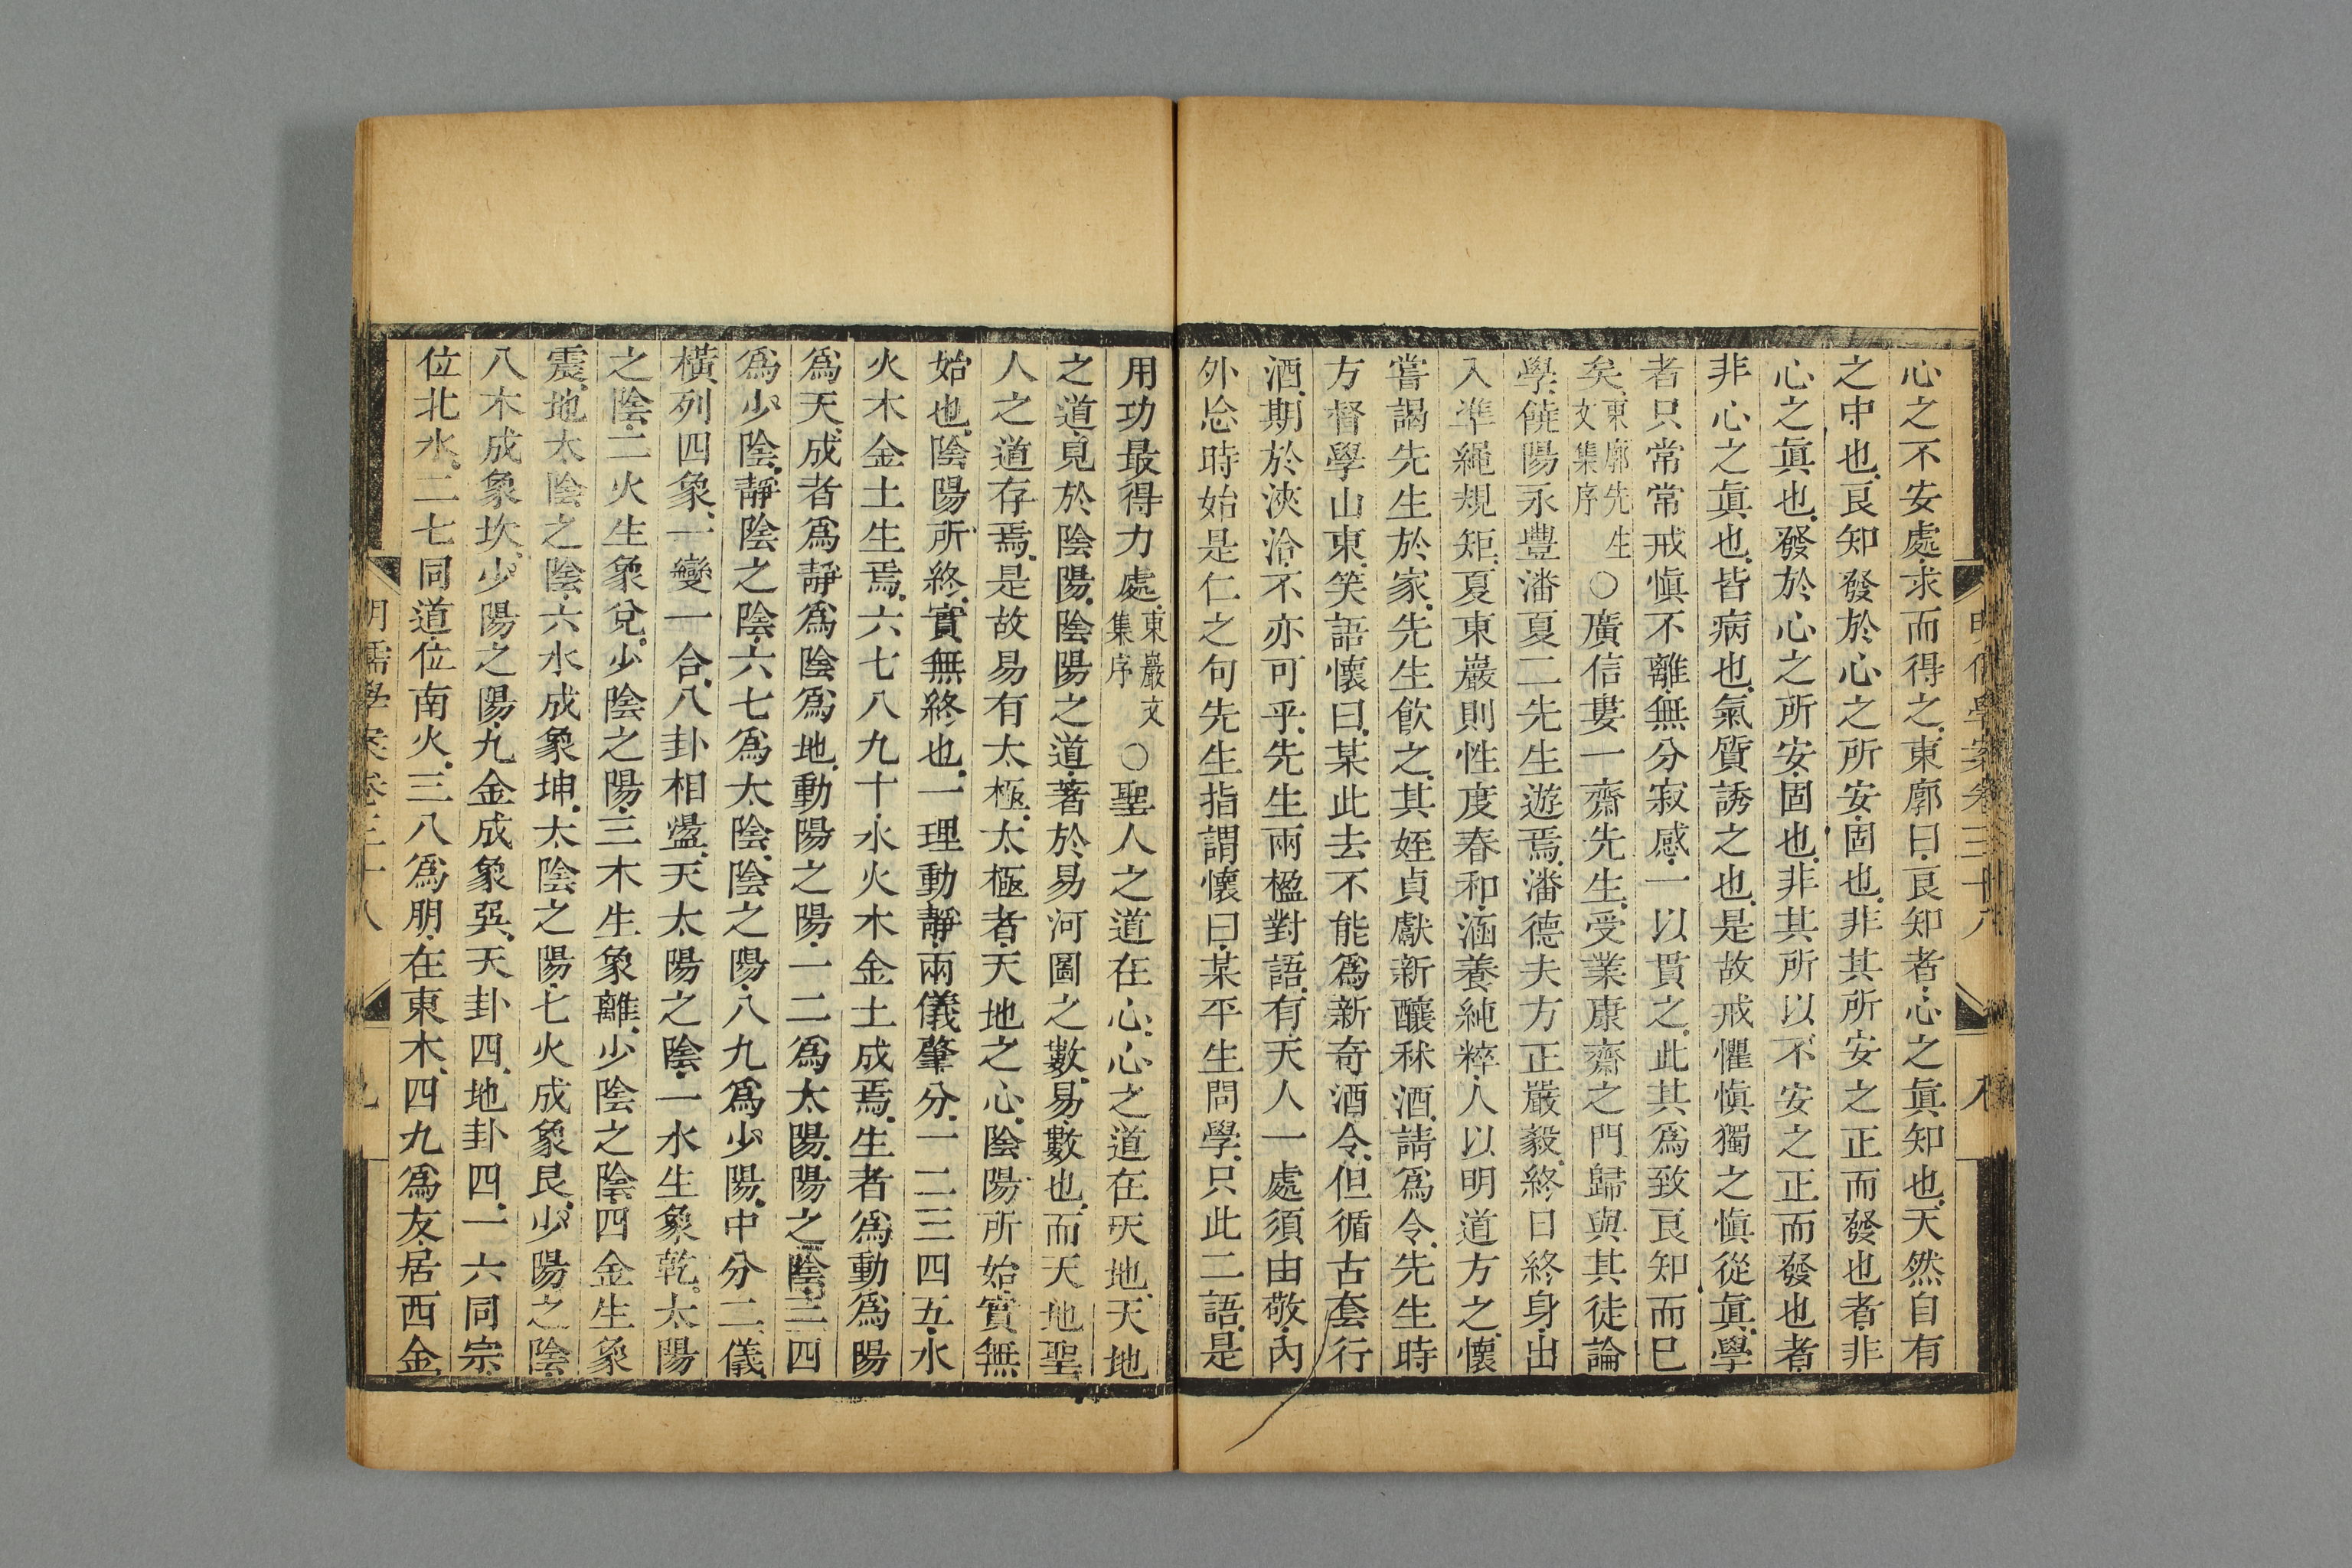 心之不安處求而得之東廓曰良知者心之眞知也天然自有
之中也良知發於心之所安固也非其所安之正而發也者非
心之眞也發於心之所安固也非其所以不安之正而發也者
非心之眞也皆病也氣質誘之也是故戒懼愼獨之愼從眞學
者只常常戒愼不離無分寂感一以貫之此其爲致良知而已
矣東廓先生文集序○廣信婁一齋先生受業康齋之門歸與其徒論
學饒陽永豐潘夏二先生遊焉潘德夫方正嚴毅終日終身出
入準繩規矩夏東巖則性度春和涵養純粹人以明道方之懷
嘗謁先生於家先生飮之其姪貞獻新釀秫酒請爲令先生時
方督學山東笑語懷曰某此去不能爲新奇酒令但循古套行
酒期於浹洽不亦可乎先生兩楹對語有天人一處須由敬內
外忘時始是仁之句先生指謂懷曰某平生問學只此二語是
明儒學案卷三十八 八
用功最得力處東巖文集序○聖人之道在心心之道在天地天地
之道見於陰陽陰陽之道著於易河圖之數易數也而天地聖
人之道存焉是故易有太極太極者天地之心陰陽所始實無
始也陰陽所終實無終也一理動靜兩儀肇分一二三四五水
火木金土生焉六七八九十水火木金土成焉生者爲動爲陽
爲天成者爲靜爲陰爲地動陽之陽一二爲太陽陽之陰三四
爲少陰靜陰之陰六七爲太陰陰之陽八九爲少陽中分二儀
橫列四象一變一合八卦相盪天太陽之陰一水生象乾太陽
之陰二火生象兌少陰之陽三木生象離少陰之陰四金生象
震地太陰之陰六水成象坤太陰之陽七火成象艮少陽之陰
八木成象坎少陽之陽九金成象巽天卦四地卦四一六同宗
位北水二七同道位南火三八爲朋在東木四九爲友居西金
明儒學案卷三十八 九